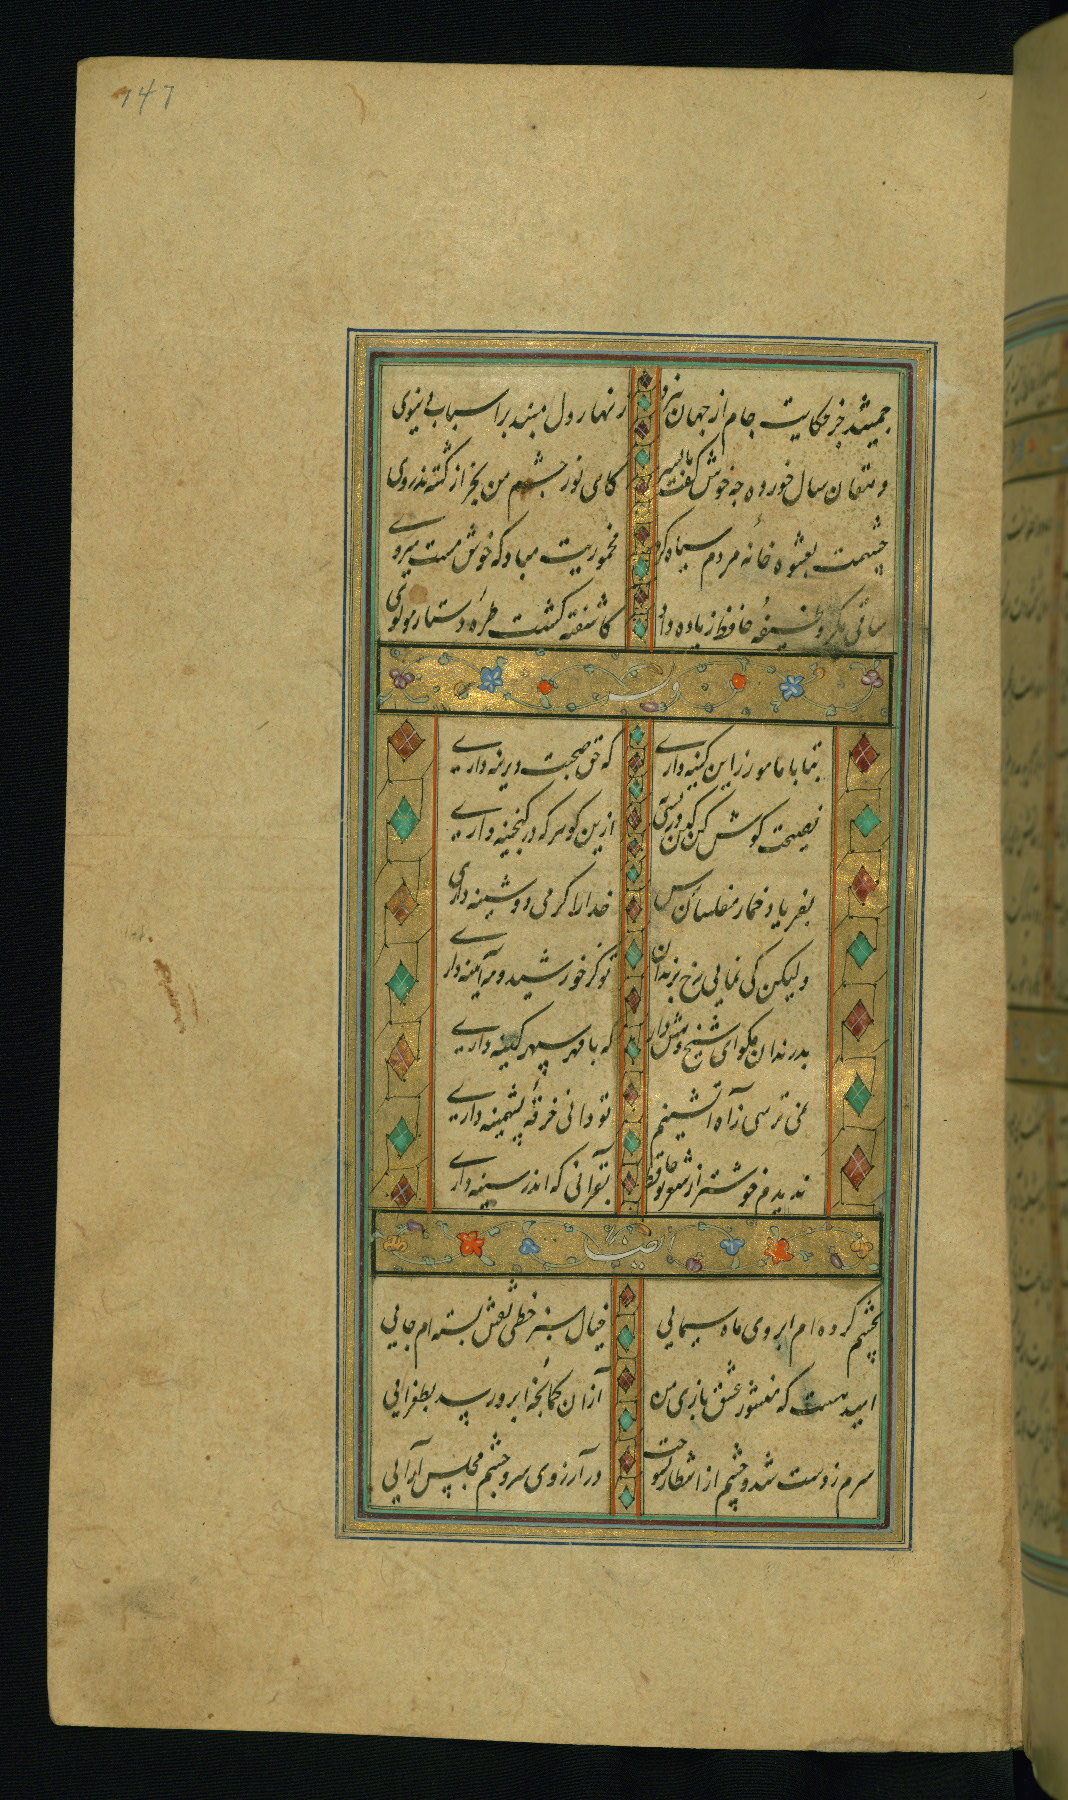 147
جمشید جز حکایت جام از جهان نبرد زنهار دل مبند بر اسباب دنیوی
دهقان سال خورده چه خوش گفت با پسر کای نور چشم من بجز از کشته ندروی
چشمت بعشوه خانهٔ مردم سیاه کرد مخموریت مباد که خوش مست میروی
ساقی مگر وظیفهٔ حافظ زیاده داد کاشفته گشت طرهٔ دستار مولوی
وله
بتا با ما مورز این کینه داری که حق صحبت دیرینه داری
نصیحت گوش کن کین در بستی ازین گوهر که در گنجینه داری
بفریاد خمار مفلسان رس خدارا گر می دوشینه داری
ولیکن کی نمایی رخ برندان تو کز خورشید و مه آیینه داری
بد رندان مگو ای شیخ و هش دار که با مهر سپهر کینه داری
نمی ترسی ز آه آتشینم تو دانی خرقهٔ پشمینه داری
ندیدم خوشتر از شعر تو حافظ بقرآنی که اندر سینه داری
ایضا
بچشم کرده ام ابروی ماه سیمایی خیال سبز خطی نقش بسته ام جایی
امید هست که منشور عشق بازی من ازان کمانچهٔ ابرو رسد بطغرایی
سرم ز دست شد و چشم از انتظار بسوخت در آرزوی سر و چشم مجلس آرایی